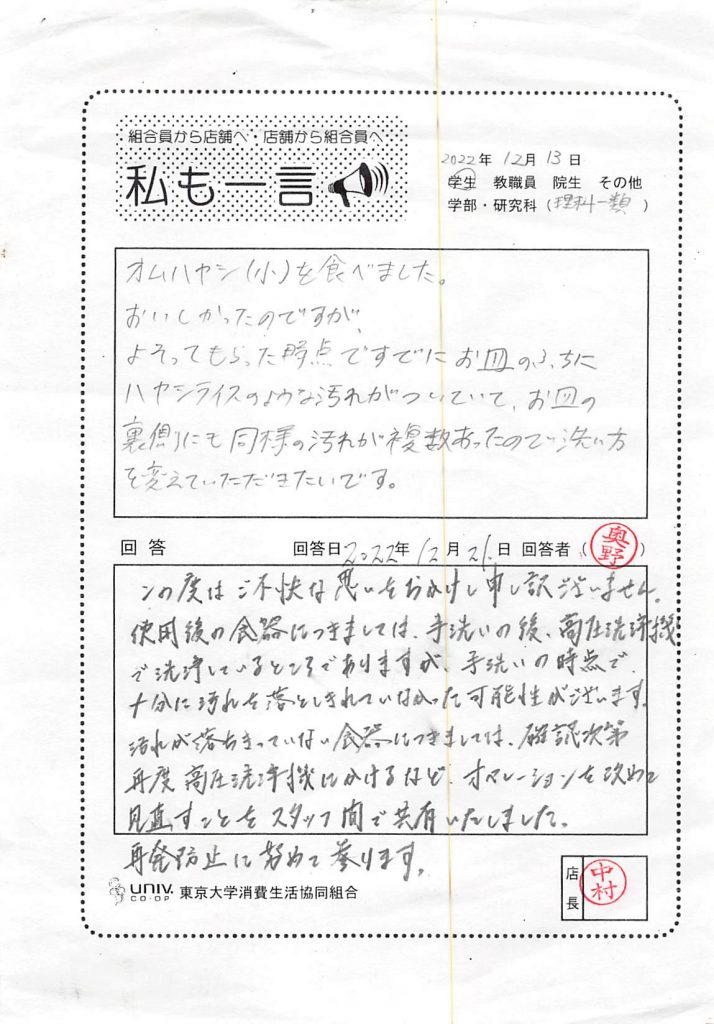 組合員から店舗へ・店舗から組合員へ
私も一言
2022年 12月 13日
学生 教職員 院生 その他
学部・研究科（理科一類）
オムハヤシ(小)を食べました。
おいしかったのですが、
よそってもらった時点ですでにお皿のふちに
ハヤシライスのような汚れがついていて、お皿の
裏側にも同様の汚れが複数あったので洗い方
を変えていただきたいです。
回答 回答日2022年 12月 21日 回答者（奥野）
この度はご不快な思いをおかけし申し訳ございません。
使用後の食器につきましては、手洗いの後、高圧洗浄機
で洗浄しているところでありますが、手洗いの時点で
十分に汚れを落としきれていなかった可能性がございます。
汚れが落ちきっていない食器につきましては、確認次第
再度高圧洗浄機にかけるなど、オペレーションを改めて
見直すことをスタッフ間で共有いたしました。
再発防止に努めて参ります。
UNIV. CO-OP 東京大学消費生活協同組合
店長 中村